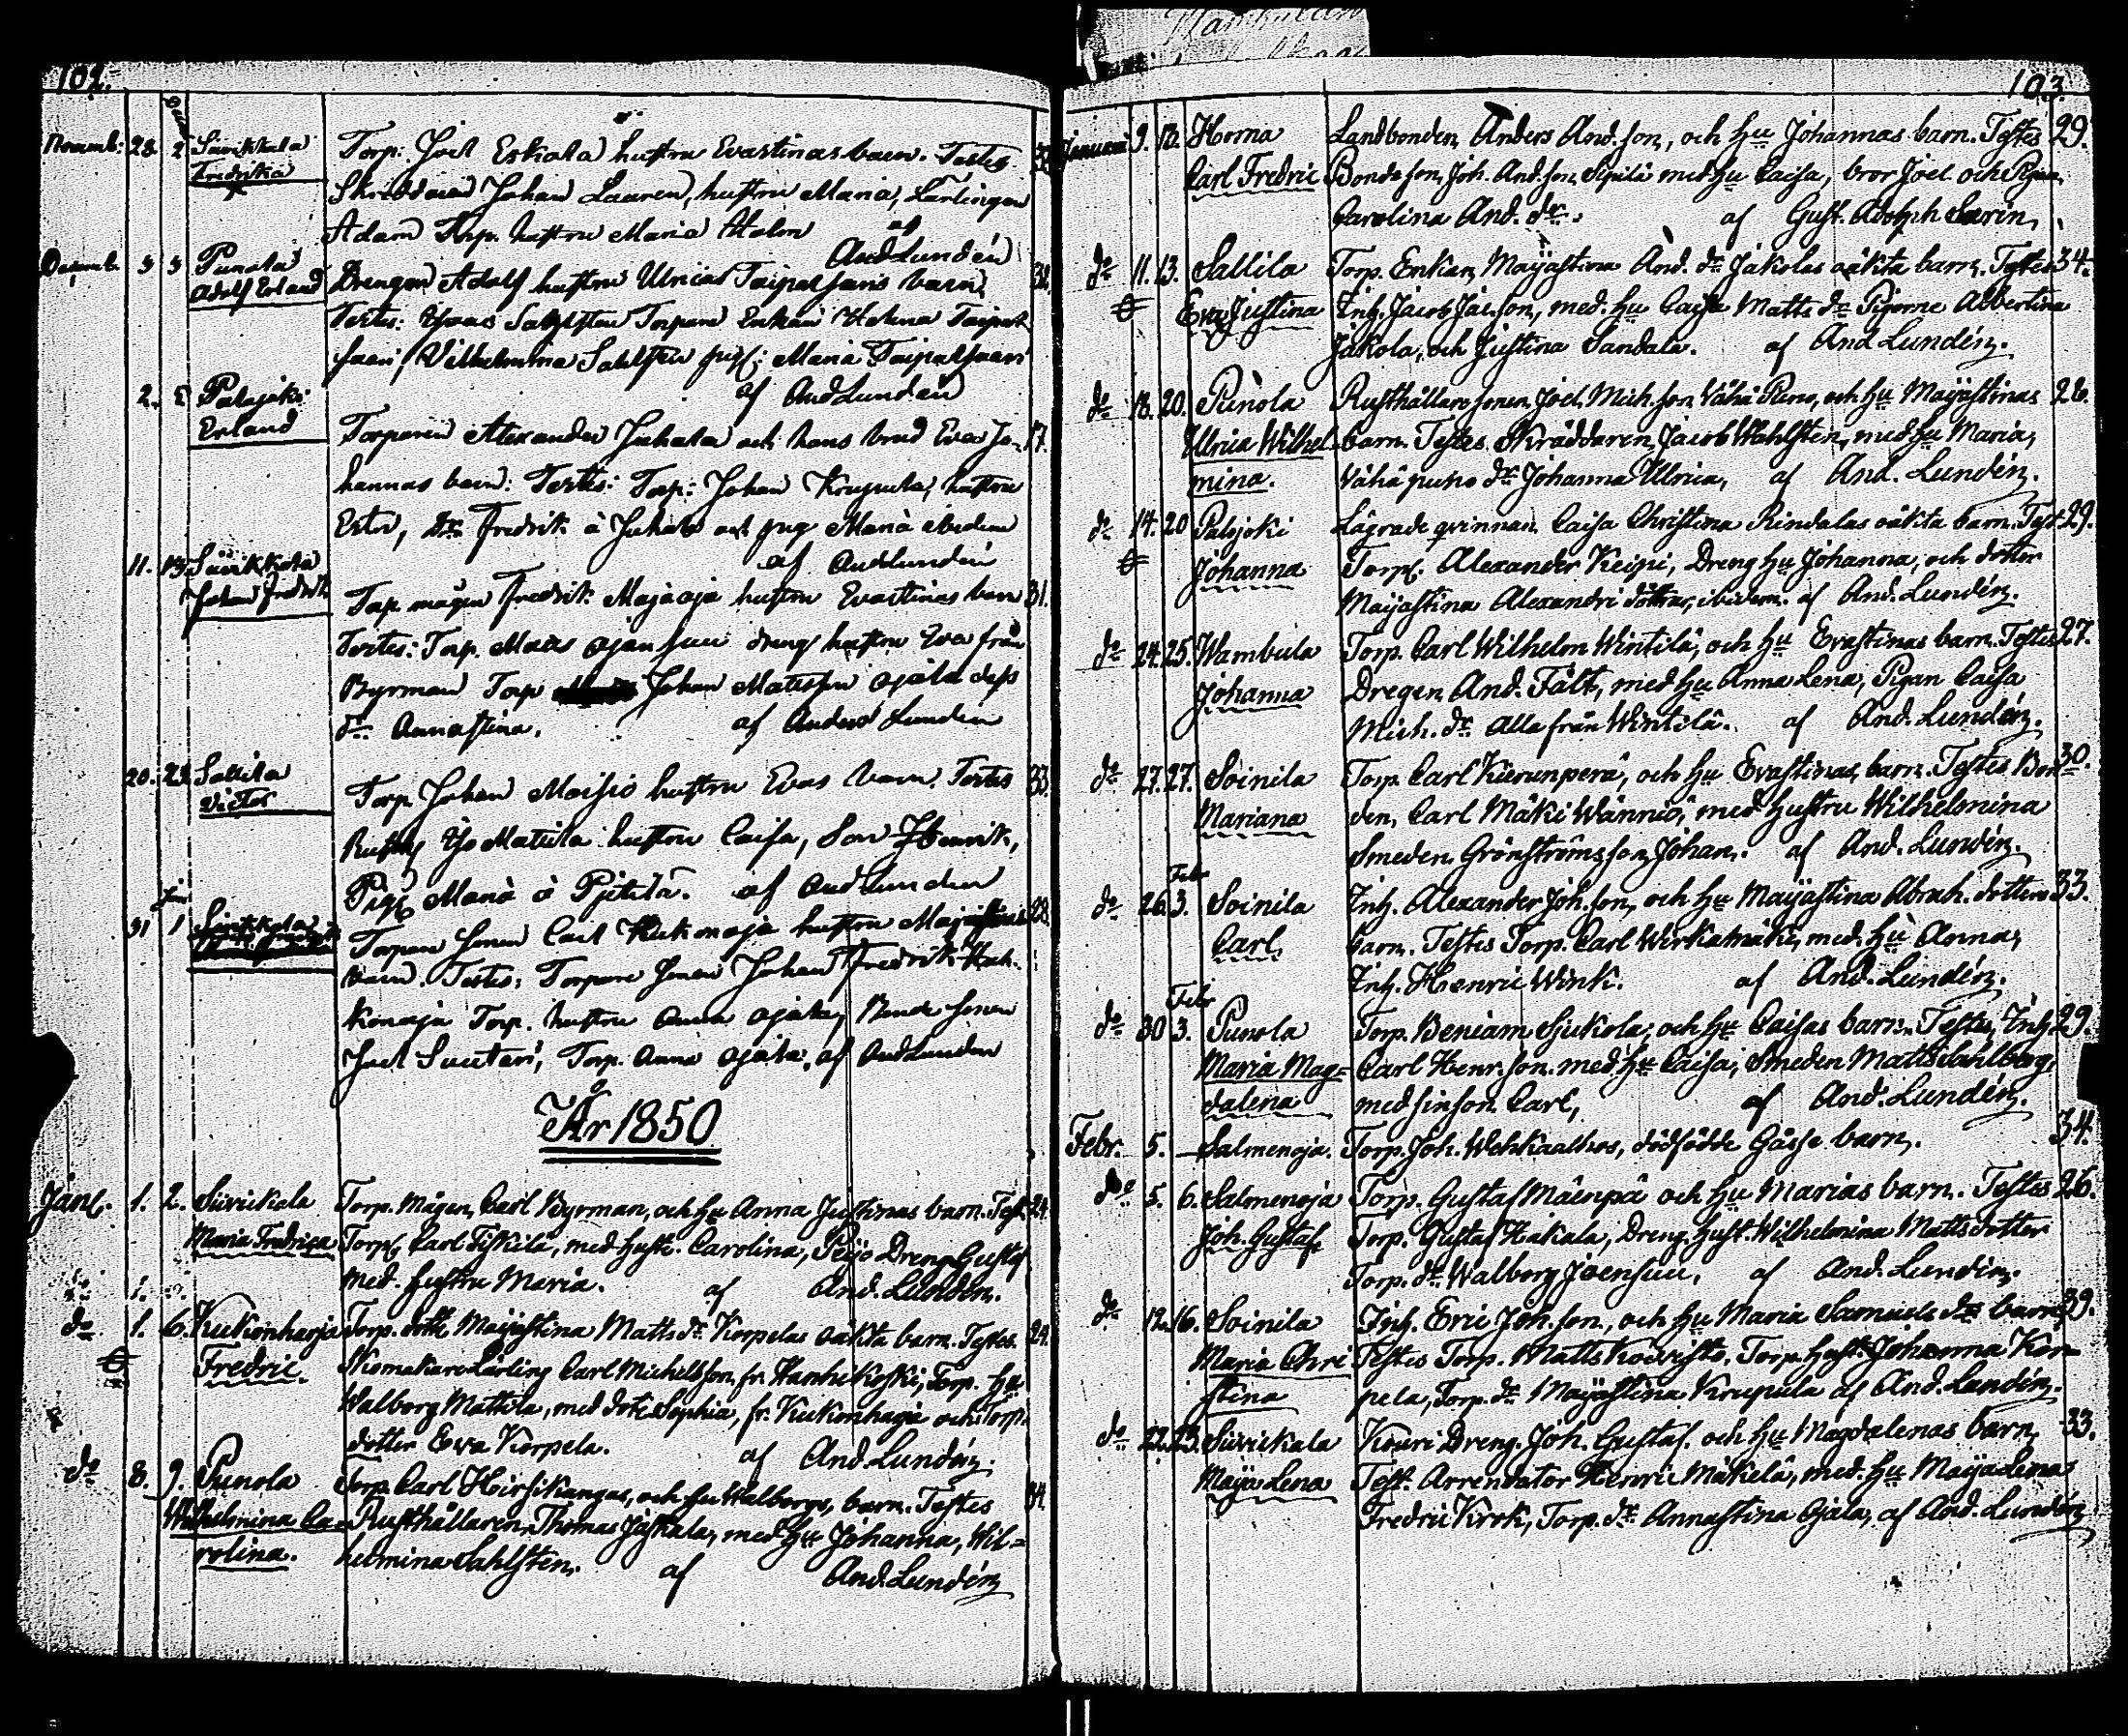 102.
Novemb: 28 2 Suvikkala Torp: Joel Eskola hustru Evastinas barn. Testes
Fredrika Skräddaren Johan Lauren, hustru Maria, Lärlingen
Adam Torp. hustru Maria af
And Lundén
Decemb. 3 3 Punola Drengen Adolf hustru Ulricas Taipalsaaris barn
Adolf Erland Testes: Sahlsten Torpare Enkan Helena Taipal
saari, Vilhelmina Sahlsten pig: Maria Taipalsaari
af And Lundén
2. Palojoki
Erland Torparen Alexander Juhala och hans brud Eva Jo- 17.
hannas barn: Testes: Torp: Johan Krupula, hustru
Ester, Fredrik å Juhala och pig Maria ibidem
af And Lundén
11. 13 Suvikkala
Johan Fredrik Torp mågen Fredrik Majaoja hustru Evastinas barn 31.
Testes: Torp. Matts ojansuu dreng hustru Eva från
Byrman Torp Johan Matsson ojala dess
dr Annastina. af Anders Lundén
20. 22 Sallila Torp Johan Moisio hustru Evas barn. Testes 33.
Victor Rusth Matula hustru Caisa, Son Henrik,
Pig Maria å Pjetilä. af And Lundén
31 1 Suvikkala Torpare sonen Carl Kukonoja hustru Majastinas 28.
barn. Testes: Torpare sonen Johan Fredrik Kuk-
konoja Torp. hustru Anna ojala, Bonde sonen
Joel Suutari, Torp. Anna ojala, af And Lundén
År 1850
Jan. 1. 2. Suvickala Torp. Mågen, Carl Byrman, och hu Anna Justinas barn. Test. 24.
Maria Fredrica Torp. Carl Fiskilä, med hust. Carolina, Peijo Dreng Gustaf
med hustru Maria. af And. Lundén.
do 1. 6. Kukonharja Torp. dott. Maijastina Matts dr Korpelas oäkta barn. Testes. 24.
Fredric. Skomakare Lärling Carl Michelsson, fr. Hanhikoski, Torp. hu
Walborg Mattila, med dott. Sophia, fr. Kukonhagia och Torp.
dotter Eva Korpela. af And. Lundén.
do 8. 9. Punola Torp. Carl Hirsikangas, och hu Walborgs, barn. Testes 34.
Wilhelmina Ca- Rusthållaren Thomas Jaskala, med hu Johanna, Wil-
rolina. helmina Sahlsten. af And. Lundén
103.
Januari 9. 10. Horna Landbonden Anders And. son, och hu Johannas barn. Testes 29.
Carl Fredric Bonde son, Joh. And. son Sipilä med hu Caisa, bror Joel och Pigan
Carolina And. dr. af Gust. Adolph Sarin,
do 11. 13. Sallila Torp. Enkan, Maijastina And. dr Jakolas oäkta barn. Testes 34.
Eva Justina Inh. Jacob Jac. son, med. hu Caisa Matts dr Pigorne Albertina
Jakola, och Justina Sandala. af And Lundén.
do 18. 20. Punola Rusthållare sonen Joel Mich. son Vähä Puno, och hu Maijastinas 26.
Ulrica Wilhel- barn. Testes. Skräddaren Jacob Wahlsten, med hu Maria,
mina. Vähäpuno dr Johanna Ulrica, af And. Lundén.
do 14. 20 Palojoki Lägrade qvinnan Caisa Christina Rindalas oäkta barn. Test. 29.
Johanna Torp. Alexander Keipi, Dreng hu Johanna, och dotter
Maijastina Alexandri döttrar, ibidem. af And. Lundén.
do 24. 25. Wambula Torp. Carl Wilhelm Wintilä, och hu Evastinas barn. Testes 27.
Johanna Dregen And. Fält, med hu Anna Lena, Pigan Caisa
Mich. dr alla från Wintilä. af And. Lundén.
do 27. 27. Soinila Torp. Carl Kierunperä, och hu Evastinas barn. Testes Bon 30.
Mariana den, Carl Mäki Wänniö, med hustru Wilhelmina
Smeden Grönströms son, Johan. af And. Lundén.
Febr
do 26. 3. Soinila Inh. Alexander Joh. son, och hu Maijastina Abrah. dotters 33.
Carl barn. Testes Torp. Carl Wirkatmäki, med hu Anna,
Inh. Henric Wink. af And. Lundén.
Febr
do 30 3. Punola Torp. Beniam Sjukola, och hu Caisas barn. Testes, Inh 29.
Maria Mag- Carl Henr. son. med hu Caisa, Smeden Matts Sahlberg,
dalena med sin son Carl, af And. Lundén.
Febr. 5. — Salmenoja. Torp. Joh. Wehkaalhos, dödfödde Gosse barn. 34.
do 5. 6. Salmenoja Torp. Gustaf Mäenpä och hu Marias barn. Testes 26.
Joh. Gustaf Torp. Gustaf Hakala, Dreng. hust. Wilhelmina Matts dotter
Torp. dr Walborg Joensuu, af And. Lundén.
do 12. 16. Soinila Inh. Eric Joh. son, och hu Maria Samuels dr barn, 39.
Maria Chri Testes Torp. Matts Koivisto, Torp. hust. Johanna Kor-
stina pela, Torp. dr Maijastina Krupula af And. Lundén.
do 22. 23. Suvickala Kouri Dreng. Joh. Gustaf. och hu Magdalenas barn, 33.
Maija Lena Test. Arrendator Henric Mäkelä, med. hu Maija Lena
Fredric Krok, Torp. dr Annastina Ojala, af And. Lundén